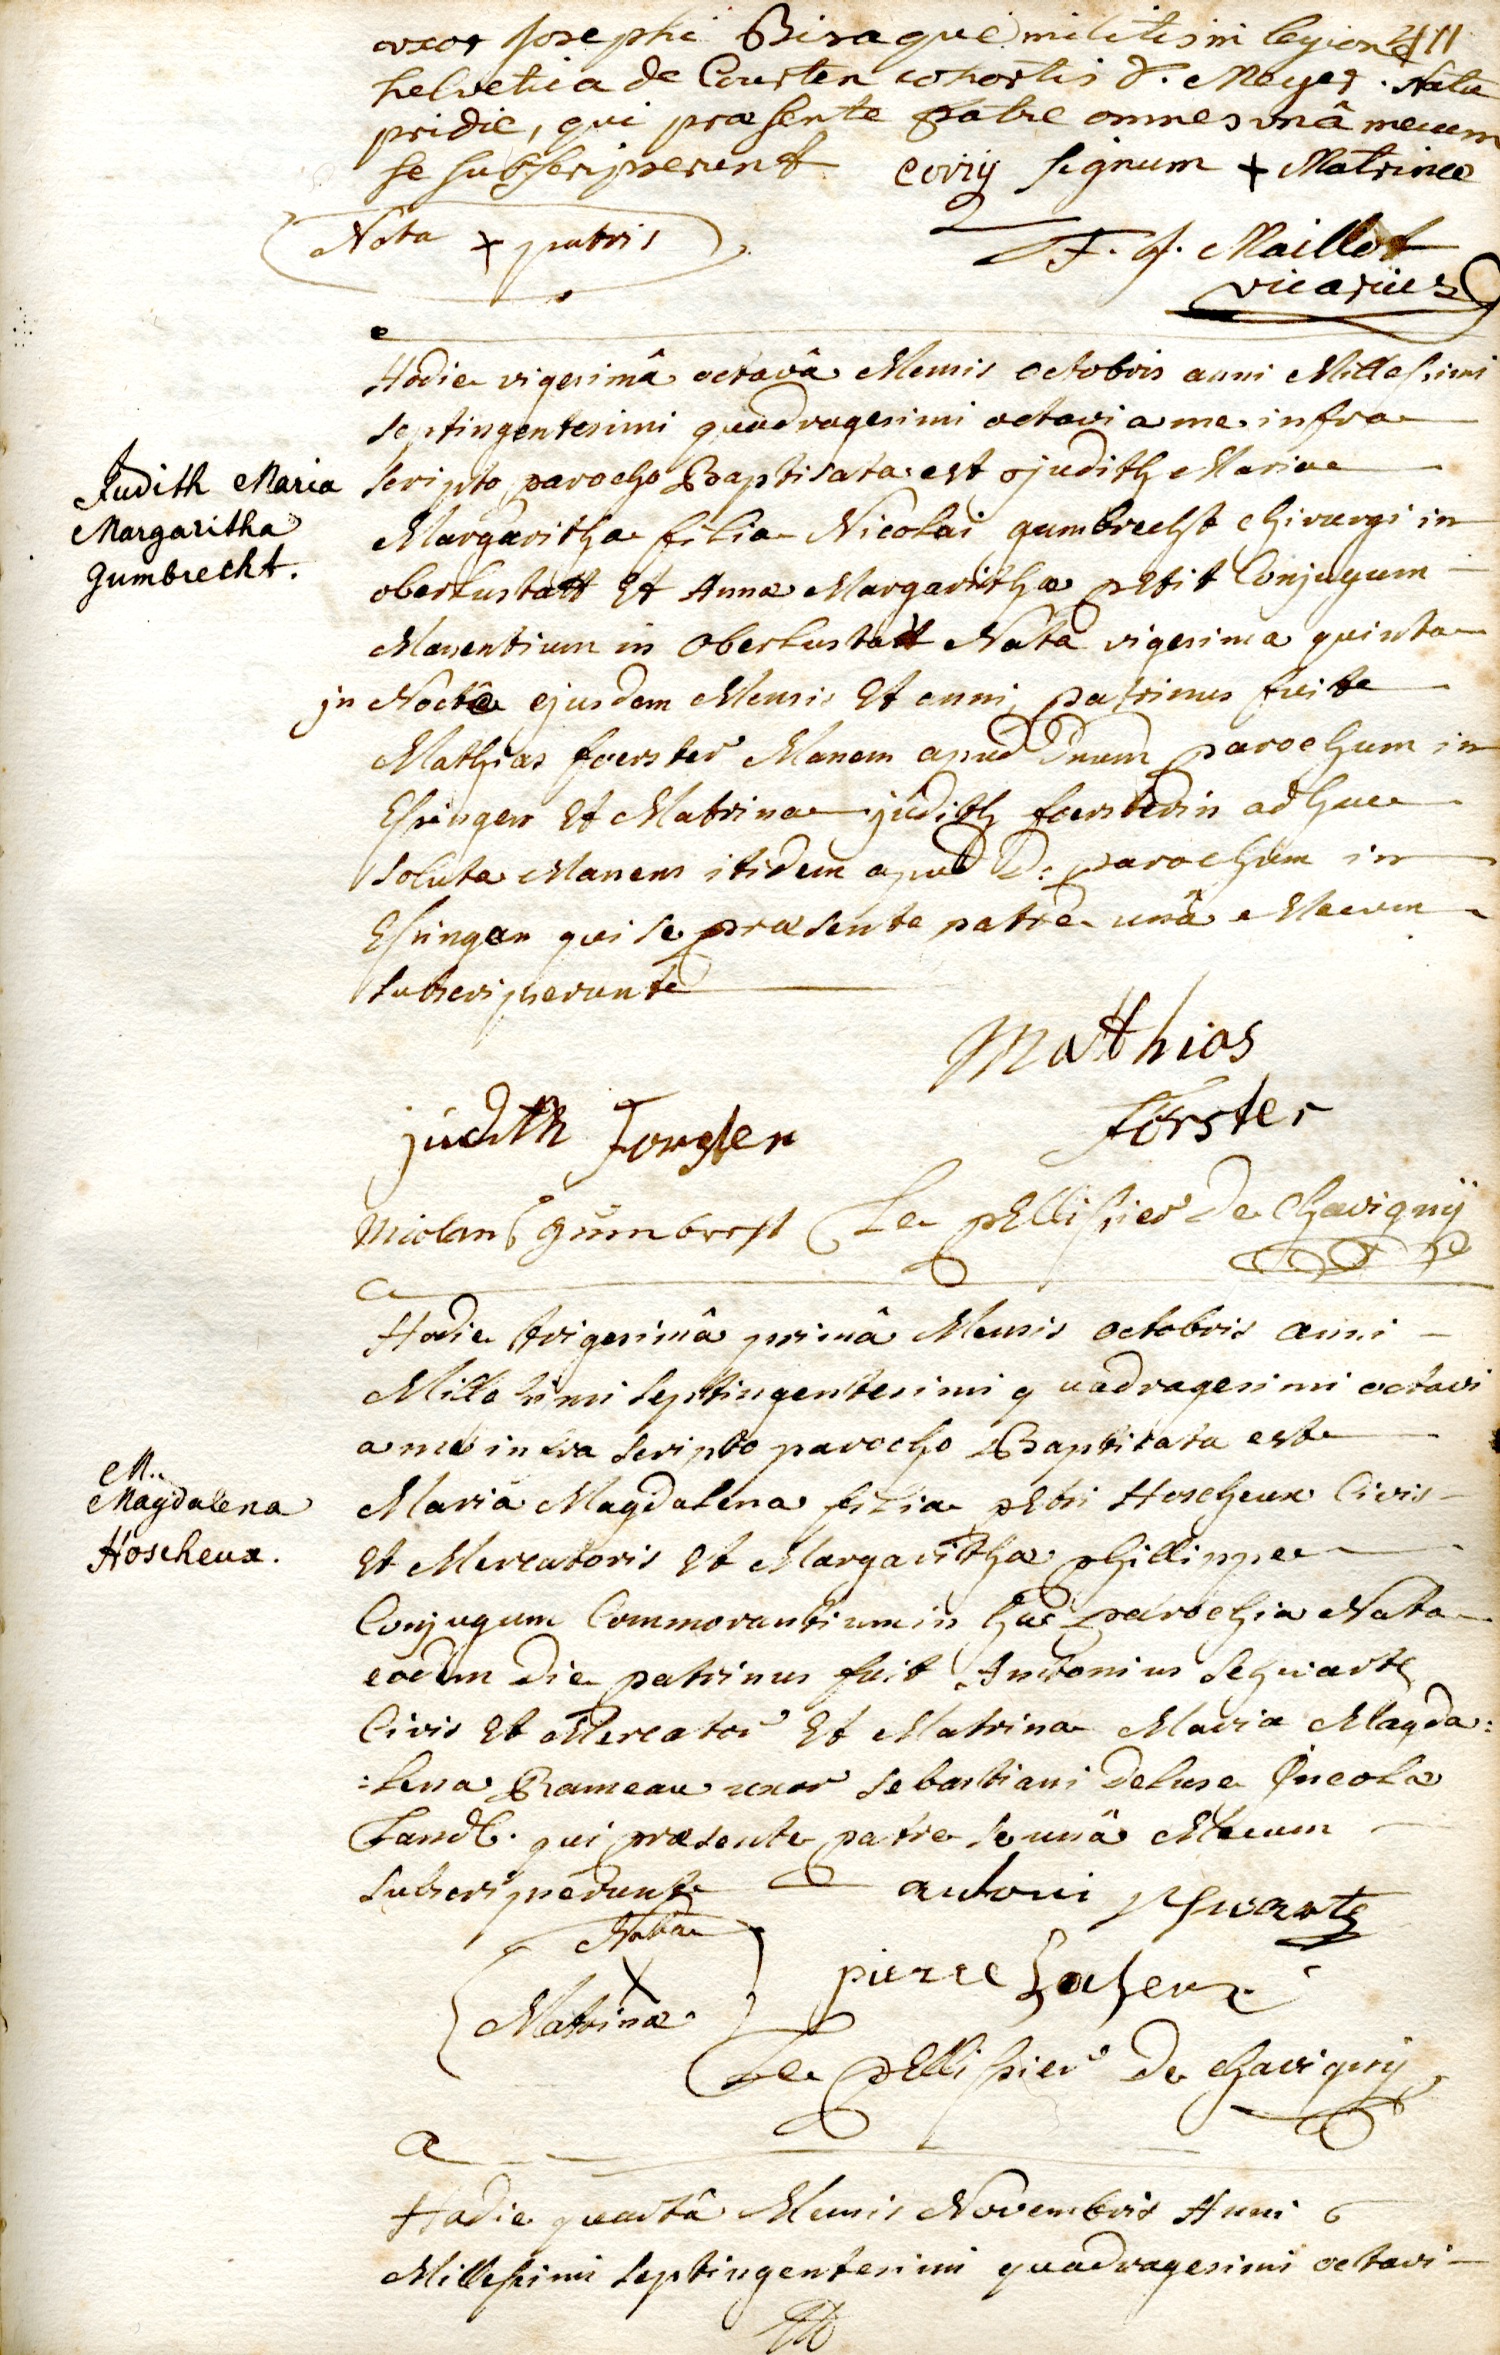 411
uxor Josephi Biraque militis in legione
helvetica de Courten cohortis d. Meyer. Nata
pridie, qui praesente patre omnes unâ mecum
se subscripserunt signum + Matrinae
Nota + patris
F. J. Maillot
vicarius
Hodie vigesimâ octavâ Mensis octobris anni Millesimi
septingentesimi quadragesimi octavi a me infra
scripto parocho Baptisata est judith Maria
Judith Maria
Margaritha
Gumbrecht.
Margaritha filia Nicolai gumbrecht chirurgi in
oberlustatt Et Annae Margarithae pEtit Conjugum
Manentium in Oberlustatt Nata vigesima quinta
in Nocte ejusdem Mensis Et anni, patrinus fuit
Mathias foerster Manens apud Dnum parochum in
Essingen Et Matrina judith foersterin adhuc
soluta Manens itidem apud D: parochum in
Essingen qui se praesente patre unâ Mecum
subscripserunt
Matthias
Förster
judith Forster
Nicolaus gümbrecht Le pEllissier De Chavignÿ
Hodie trigesimâ primâ Mensis octobris anni
Millesimi septingentesimi quadragesimi octavi
a me infra scripto parocho Baptisata est
M.
Magdalena
Hoscheux.
Maria Magdalena filia pEtri Hoscheux Civis
Et Mercatoris Et Margarithae phillippe
Conjugum Commorantium in hac parochia Nata
eodem Die patrinus fuit Antonius schwartz
Civis Et Mercator Et Matrina Maria Magda:
:lena Rameau uxor sebastiani Deluse Incolae
Land. qui praesente patre se unâ Mecum
subscripserunt
antoni schwartz
Nota
X
Matrinae
pierre hoscheux
Le pEllissier De chavigny
Hodie quartâ Mensis Novembris Anni
Millesimi septingentesimi quadragesimi octavi